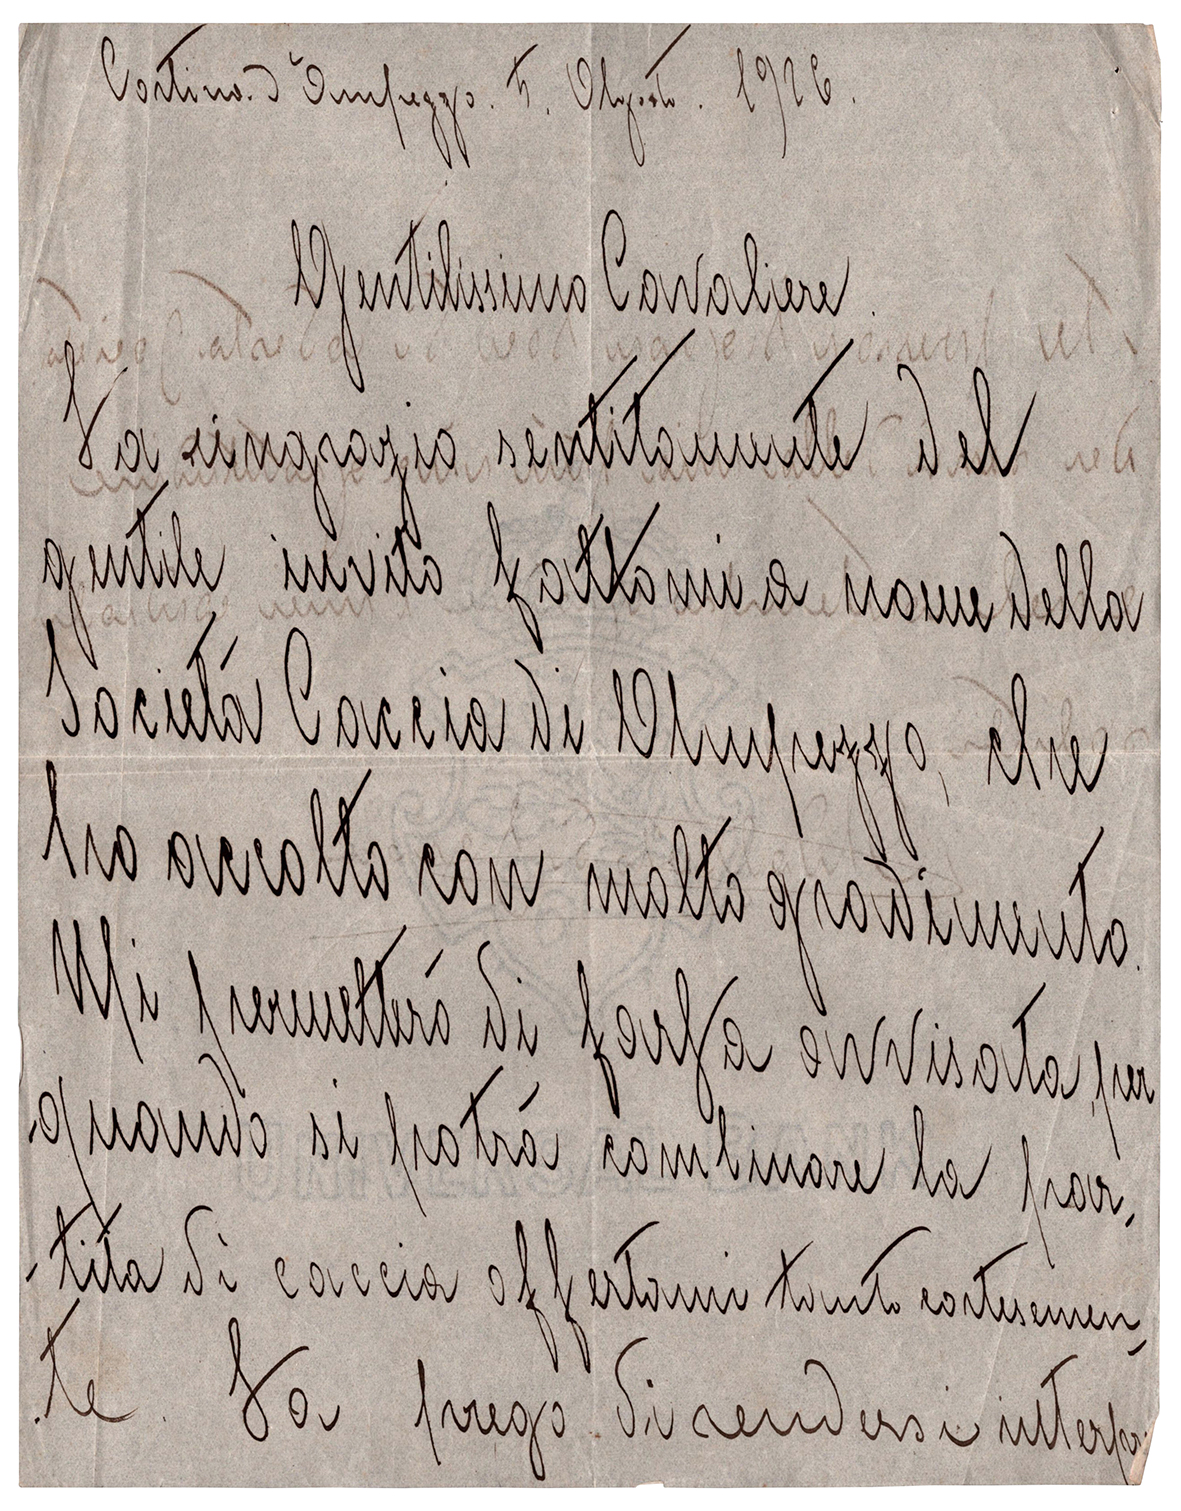 Cortina d'Ampezzo. 5. Agosto. 1926.
Gentilissimo Cavaliere.
La ringrazio sentitamente del
gentile invito fattomi a nome della
Società Caccia di Ampezzo, che
ho accolto con molto gradimento.
Mi permetterò di farla avvisata, per
quando si potrà combinare la par-
-tita di caccia offertami tanto cortesemen-
-te. La prego di rendersi interpr